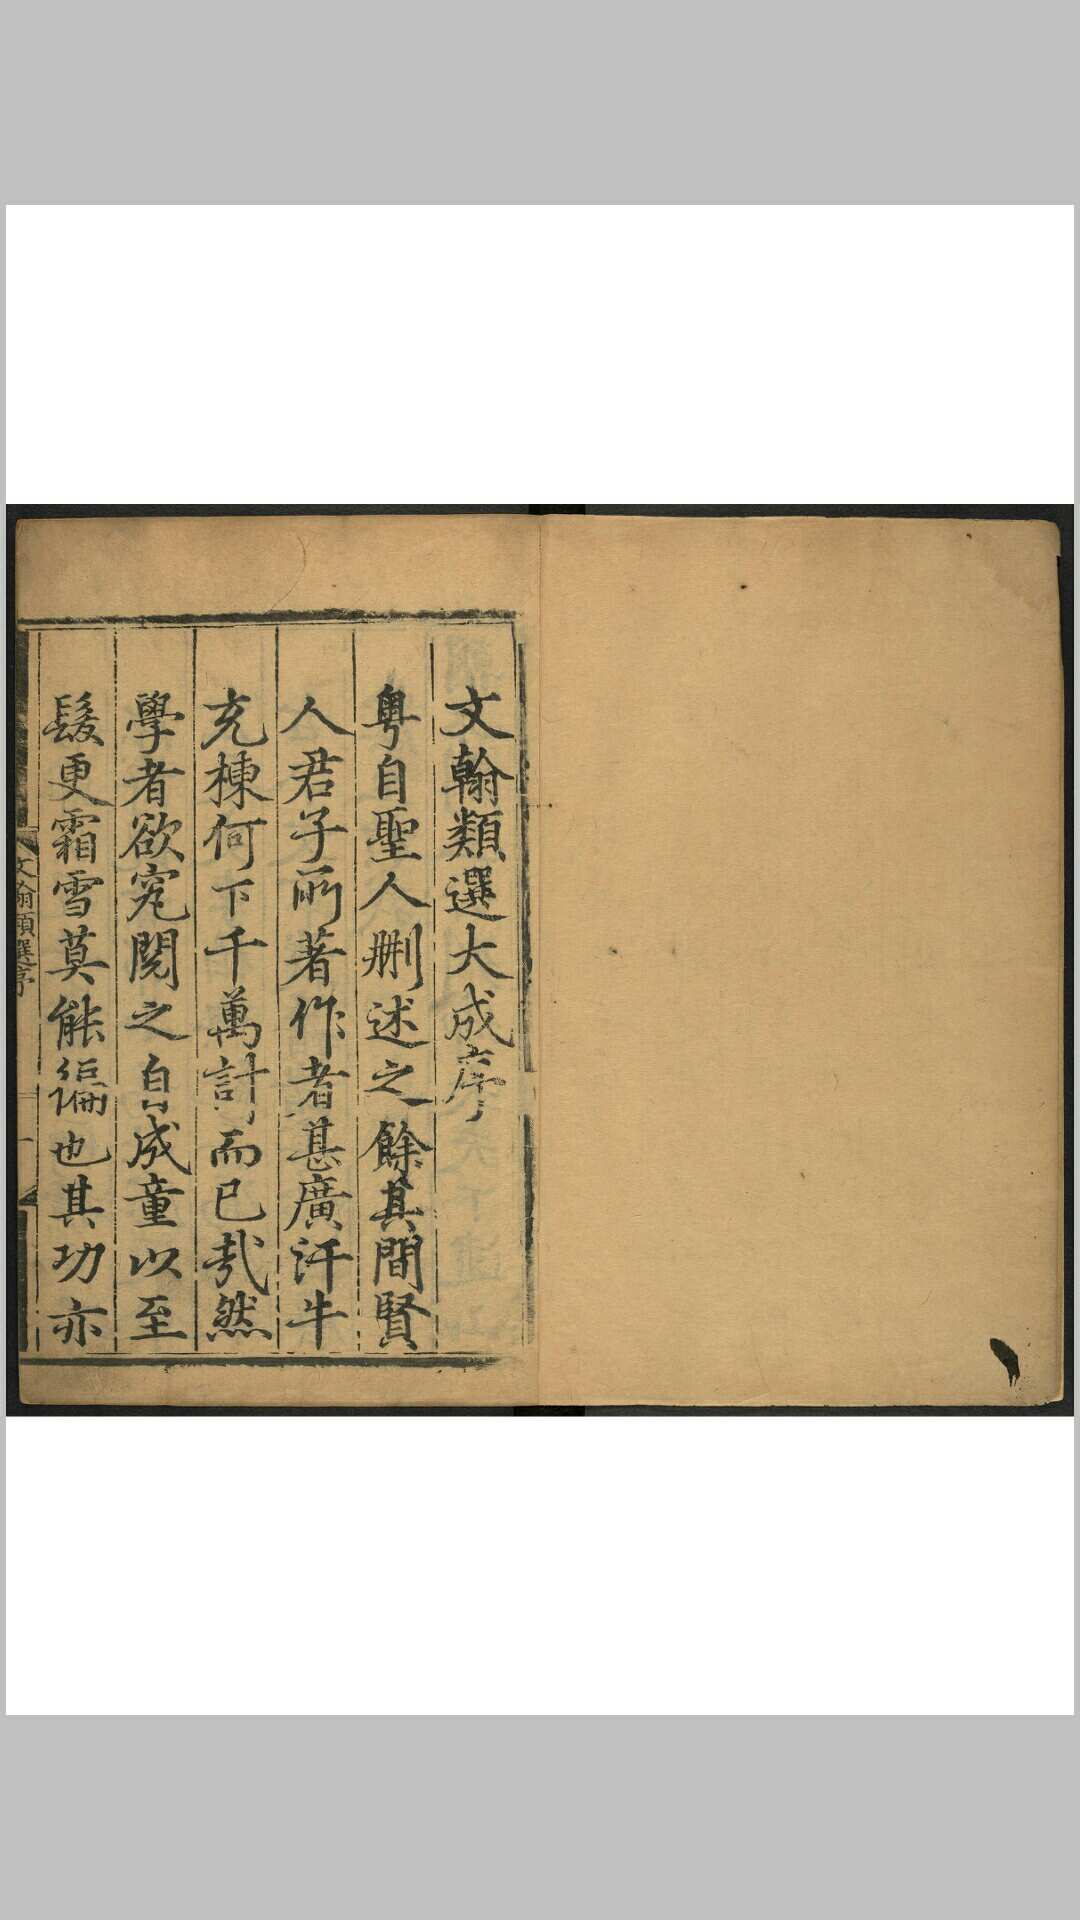 文翰類選大成序
粤自聖人刪述之餘其間賢
人君子所著作者甚廣汗牛
充棟何下千萬計而已哉然
學者欲究閱之自成童以至
髮更霜雪莫能徧也其功亦
文翰類選序
一